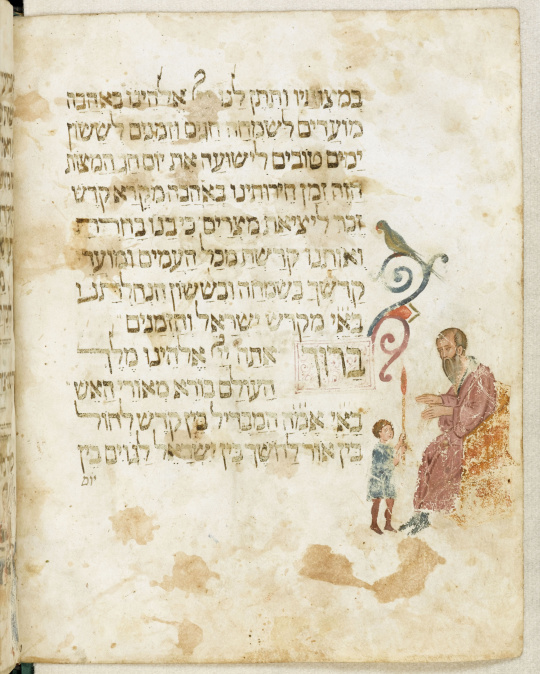 במצותיו ותתן לנו ײ אלהינו באהבה
מועדים לשמחה חגים וזמנים לששון
ימים טובים לישועה את יום חג המצות
הזה זמן חירותינו באהבה מקרא קדש
זכר ליציאת מצרים כי בנו בחרת
ואותנו קדשת מכל העמים ומועדי
קדשך בשמחה ובששון הנחלתנו
באײ מקדש ישראל והזמנים
ברוך אתה ײ אלהינו מלך
העולם בורא מאורי האש
באײ אמ׳ה המבדיל בין קדש לחול
בין אור לחשך בין ישראל לגוים בין
יום